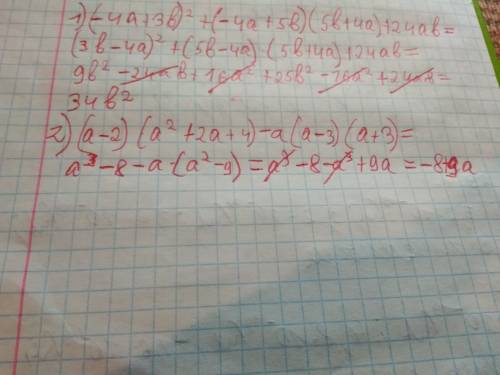 1) (-4a+3b)² + (-4a+5b)(5b+4a)+24ab=
(3b-4a)² + (5b-4a)·(5b+4a)+24ab=
9b² - 24ab + 16a² + 25b² - 16a² + 24ab=
34b²
2) (a-2)(a²+2a+4)-a(a-3)(a+3)=
a³-8-a·(a²-9)=a³-8-a³+9a=-8+9a